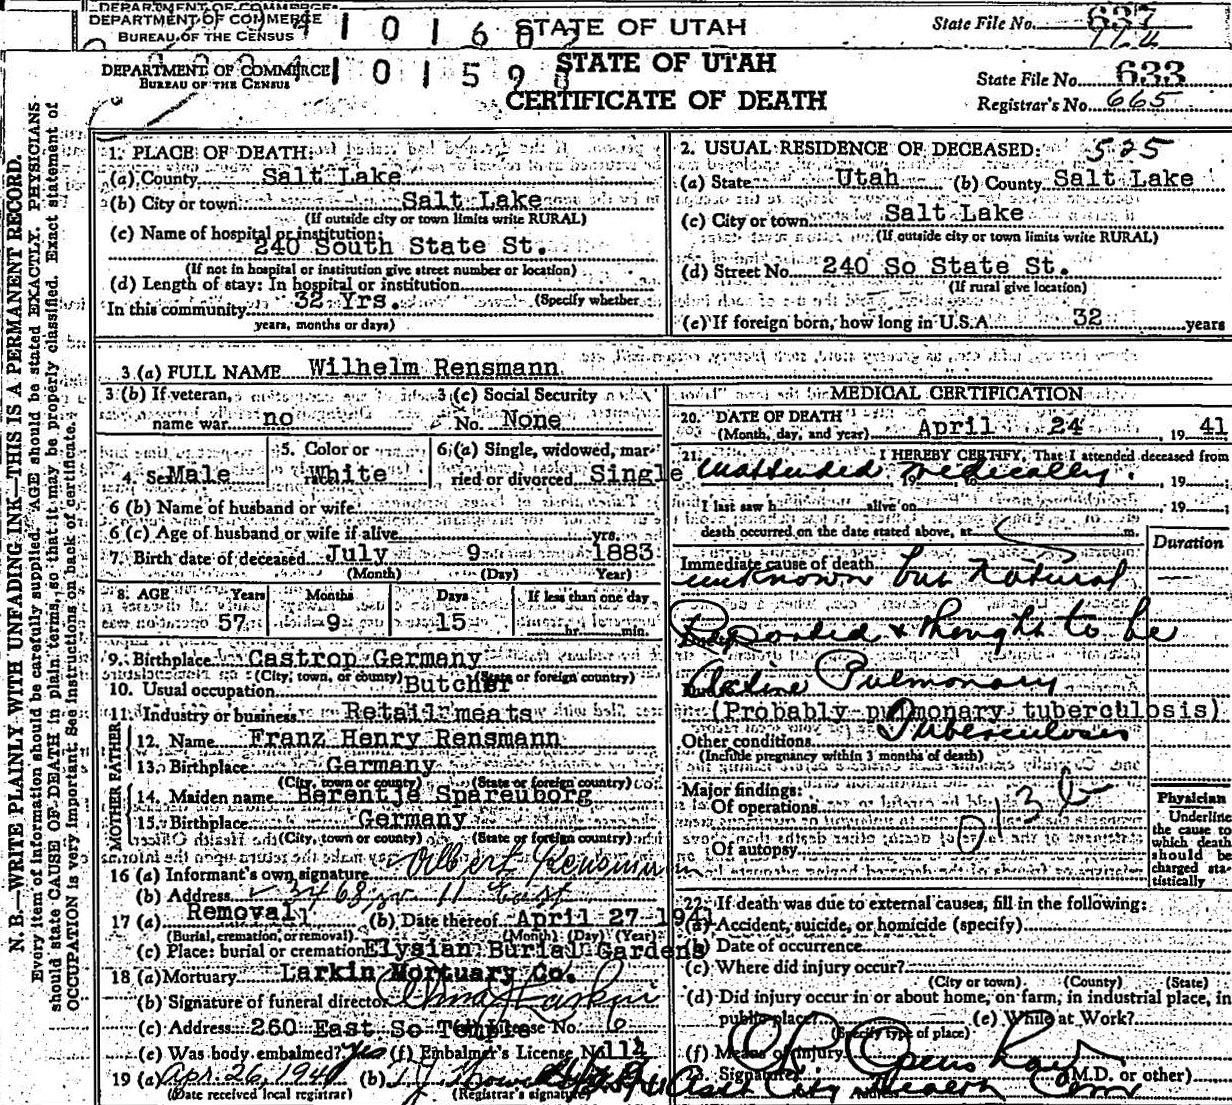 DEPARTMENT OF COMMERCE
DEPARTMENT OF COMMERCE
BUREAU OF THE CENSUS
STATE OF UTAH
State File No. 637
DEPARTMENT OF COMMERCE
BUREAU OF THE CENSUS
STATE OF UTAH
CERTIFICATE OF DEATH
State File No. 633
Registrar's No. 665
N. B.—WRITE PLAINLY WITH UNFADING INK—THIS IS A PERMANENT RECORD.
Every item of information should be carefully supplied. AGE should be stated EXACTLY. PHYSICIANS
should state CAUSE OF DEATH in plain terms, so that it may be properly classified. Exact statement of
OCCUPATION is very important. See instructions on back of certificate.
1. PLACE OF DEATH:
(a) County Salt Lake
(b) City or town Salt Lake
(If outside city or town limits write RURAL)
(c) Name of hospital or institution:
240 South State St.
(If not in hospital or institution give street number or location)
(d) Length of stay: In hospital or institution
In this community 32 Yrs. (Specify whether
years, months or days)
2. USUAL RESIDENCE OF DECEASED: 525
(a) State Utah (b) County Salt Lake
(c) City or town Salt Lake
(If outside city or town limits write RURAL)
(d) Street No. 240 So State St.
(If rural give location)
(e) If foreign born, how long in U.S.A. 32 years
3 (a) FULL NAME Wilhelm Rensmann
3 (b) If veteran, name war no
3 (c) Social Security No. None
4. Sex Male
5. Color or race White
6 (a) Single, widowed, married or divorced Single
6 (b) Name of husband or wife
6 (c) Age of husband or wife if alive yrs.
7. Birth date of deceased July 9 1883
(Month) (Day) Year)
8. AGE Years Months Days If less than one day
57 9 15 hr. min.
9. Birthplace Castrop Germany
(City, town, or county) (State or foreign country)
10. Usual occupation Butcher
11. Industry or business Retail meats
FATHER
12. Name Franz Henry Rensmann
13. Birthplace Germany
(City, town or county) (State or foreign country)
MOTHER
14. Maiden name Berentje Spareuborg
15. Birthplace Germany
(City, town or county) (State or foreign country)
16 (a) Informant's own signature Albert Rensmann
(b) Address 11 East
17 (a) Removal (b) Date thereof April 27 1941
(Burial, cremation, or removal) (Month) (Day) (Year)
(c) Place: burial or cremation Elysian Burial Gardens
18 (a) Mortuary Larkin Mortuary Co.
(b) Signature of funeral director Larkin
(c) Address 260 East So Temple License No.
(e) Was body embalmed? Yes (f) Embalmer's License No. 114
19 (a) Apr. 26, 1941 (b)
(Date received local registrar) (Registrar's signature)
MEDICAL CERTIFICATION
20. DATE OF DEATH
(Month, day, and year) April 24, 19 41
21. I HEREBY CERTIFY, That I attended deceased from
Unattended medically. 19
I last saw h alive on , 19 ;
death occurred on the date stated above, at m.
Duration
Immediate cause of death
unknown but natural
Reported & thought to be
Active Pulmonary
(Probably pulmonary tuberculosis)
Tuberculosis
Other conditions
(Include pregnancy within 3 months of death)
Major findings:
Of operations
Of autopsy
013 b
Physician
Underline
the cause to
which death
should be
charged sta-
tistically
22. If death was due to external causes, fill in the following:
(a) Accident, suicide, or homicide (specify)
(b) Date of occurrence
(c) Where did injury occur?
(City or town) (County) (State)
(d) Did injury occur in or about home, on farm, in industrial place, in
public place? (e) While at Work?
(Specify type of place)
(f) Means of injury
Signature (M.D. or other)
Address